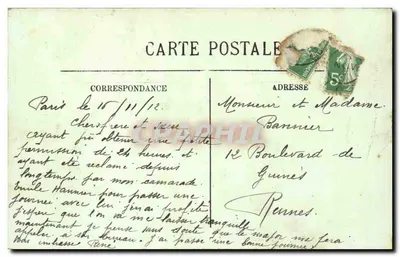 CARTE POSTALE
5c
CORRESPONDANCE
Paris le 15/11/12.
Chers frere et sœur
ayant pu obtenir une petite
permission de 24 heures et
ayant été réclamé depuis
longtemps par mon camarade
Emile Hannier pour passer une
journée avec lui j'en ai profité
j'espère que l'on va me laisser tranquille
maintenant je pense sans doute que le major me fera
appeler à son bureau. J'ai passé une bonne journée.
Vous embrasse René
ADRESSE
Monsieur et Madame
Bannier
12 Boulevard de
Guines
Rennes.